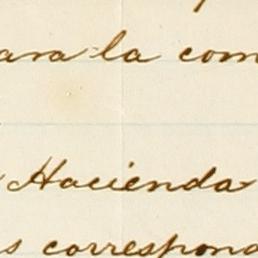 para la com
Hacienda
s correspond